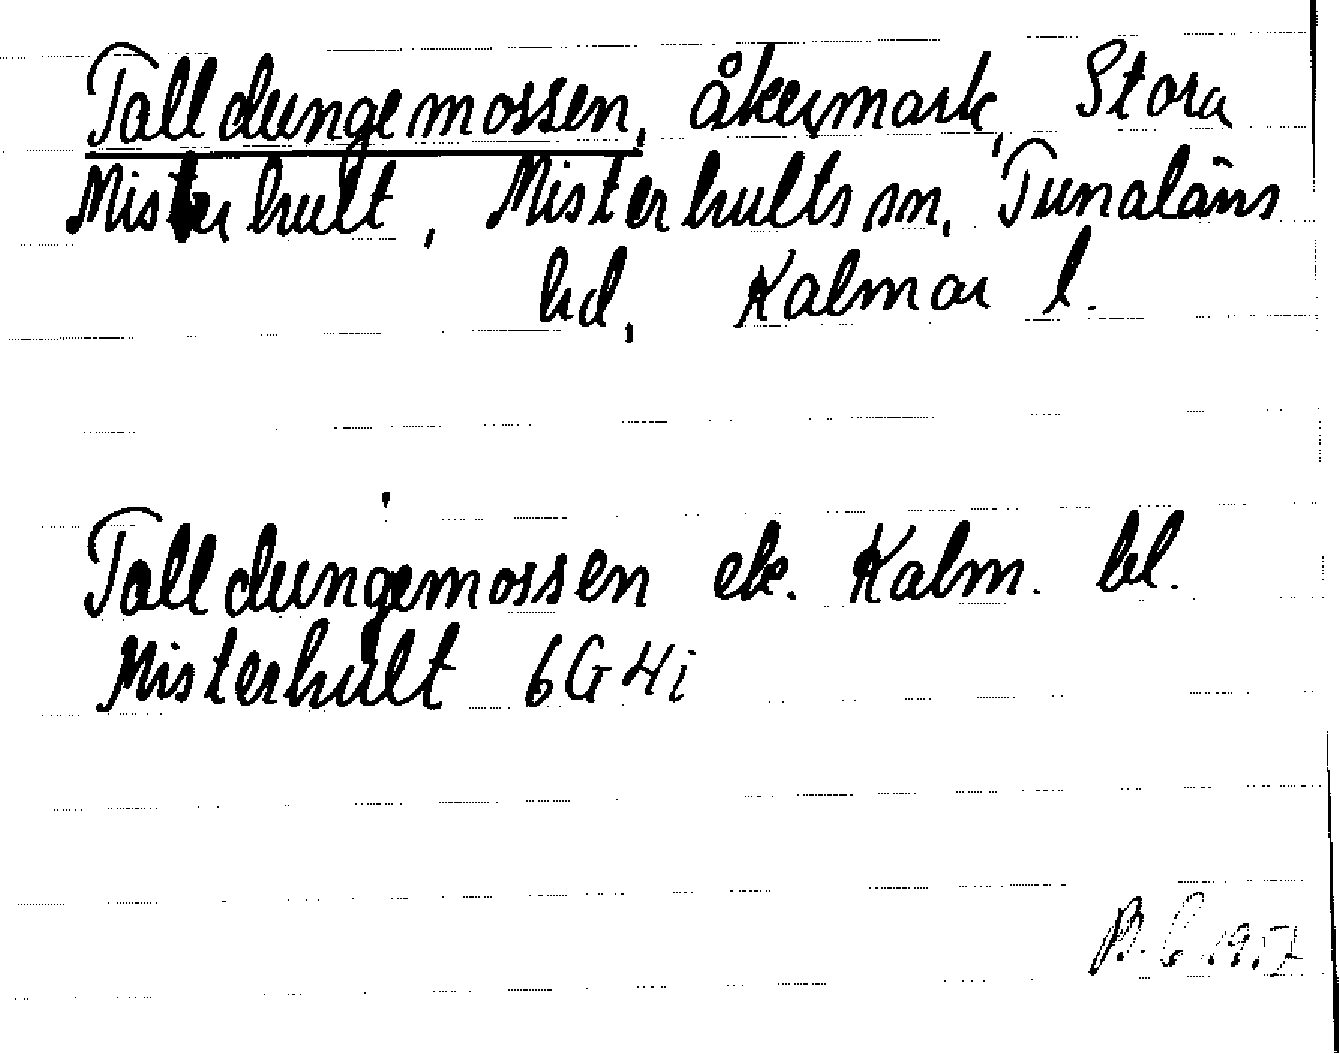 Talldungemossen, åkermark, Stora
Misterhult, Misterhults sn, Tunaläns
hd, Kalmar l.
Talldungemossen ek. Kalm. bl.
Misterhult 6G4i